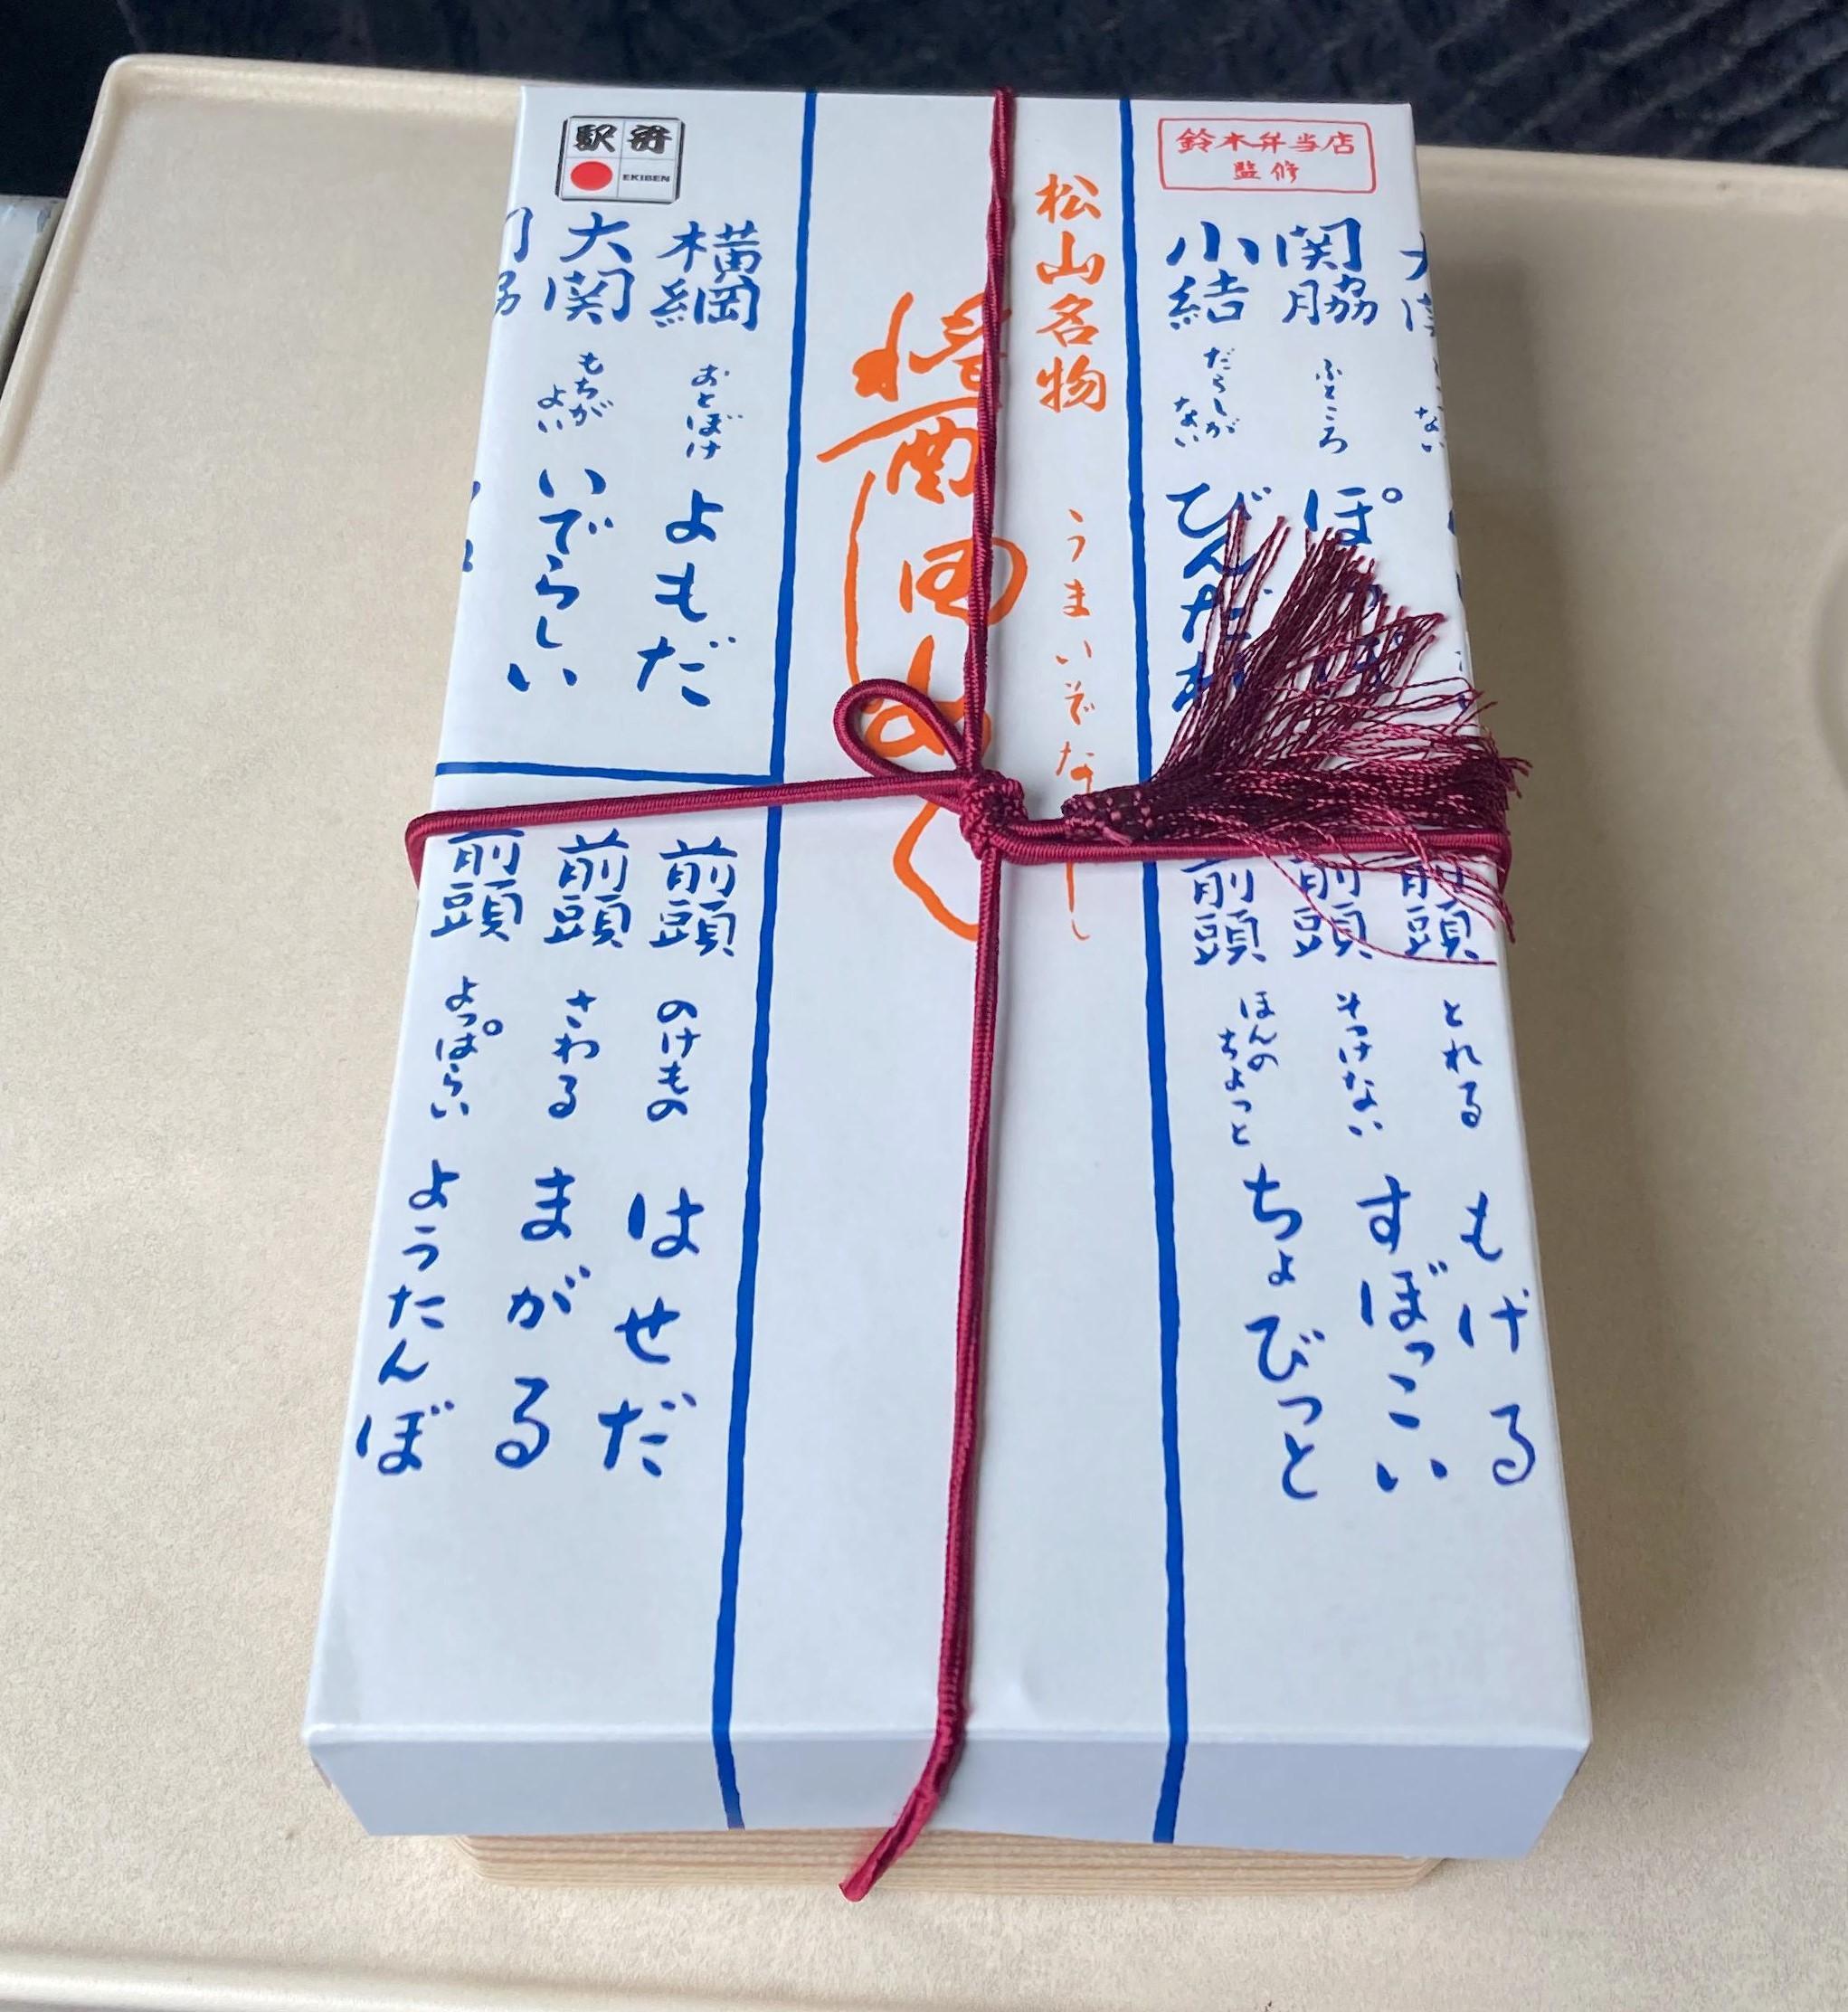 駅弁
EKIBEN
鈴木弁当店
監修
関脇 ふところ ぽっぽ
小結 だらしがない びんだれ
前頭 とれる もげる
前頭 そっけない すぼっこい
前頭 ほんのちょっと ちょびっと
松山名物 うまいぞなもし
醤油めし
横綱 おとぼけ よもだ
大関 もちがよい いでらしい
前頭 のけもの はせだ
前頭 さわる まがる
前頭 よっぱらい ようたんぼ